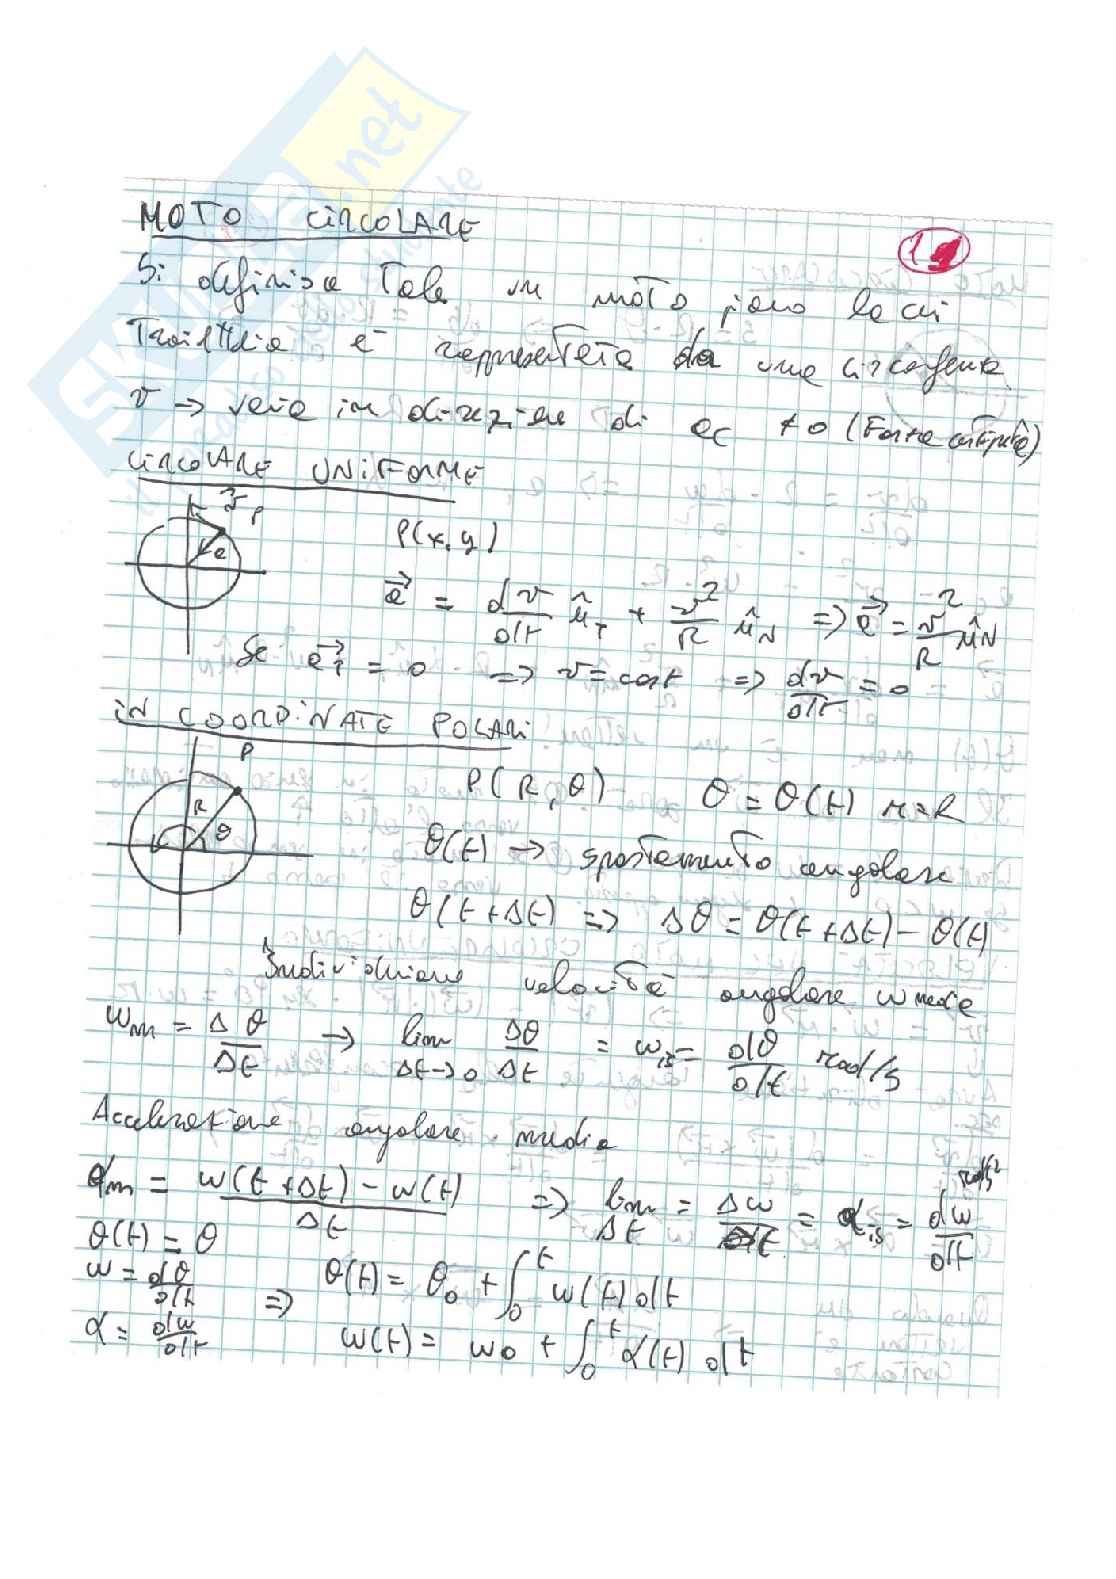 SKUOLA.net
MOTO CIRCOLARE
1
Si definisce Tale un moto piano la cui
Traiettoria è rappresentata da una circonferenza
v → varia in direzione di ac ≠ 0 (Forza centripeta)
CIRCOLARE UNIFORME
v P
a
P(x, y)
a⃗ = dv/dt û_T + v²/R û_N => a⃗ = v²/R û_N
Se a⃗_T = 0 => v = cost => dv/dt = 0
IN COORDINATE POLARI
P
R
θ
P(R, θ) θ = θ(t) r = R
θ(t) → spostamento angolare
θ(t + Δt) => Δθ = θ(t + Δt) - θ(t)
Individuiamo velocità angolare w media
wm = Δθ/Δt → lim Δt→0 Δθ/Δt = w is = dθ/dt rad/s
Accelerazione angolare media
αm = w(t + Δt) - w(t) / Δt => lim Δt = Δw/Δt = α is = dw/dt rad/s²
θ(t) = θ
w = dθ/dt => θ(t) = θ0 + ∫₀ᵗ w(t) dt
α = dw/dt w(t) = w0 + ∫₀ᵗ α(t) dt